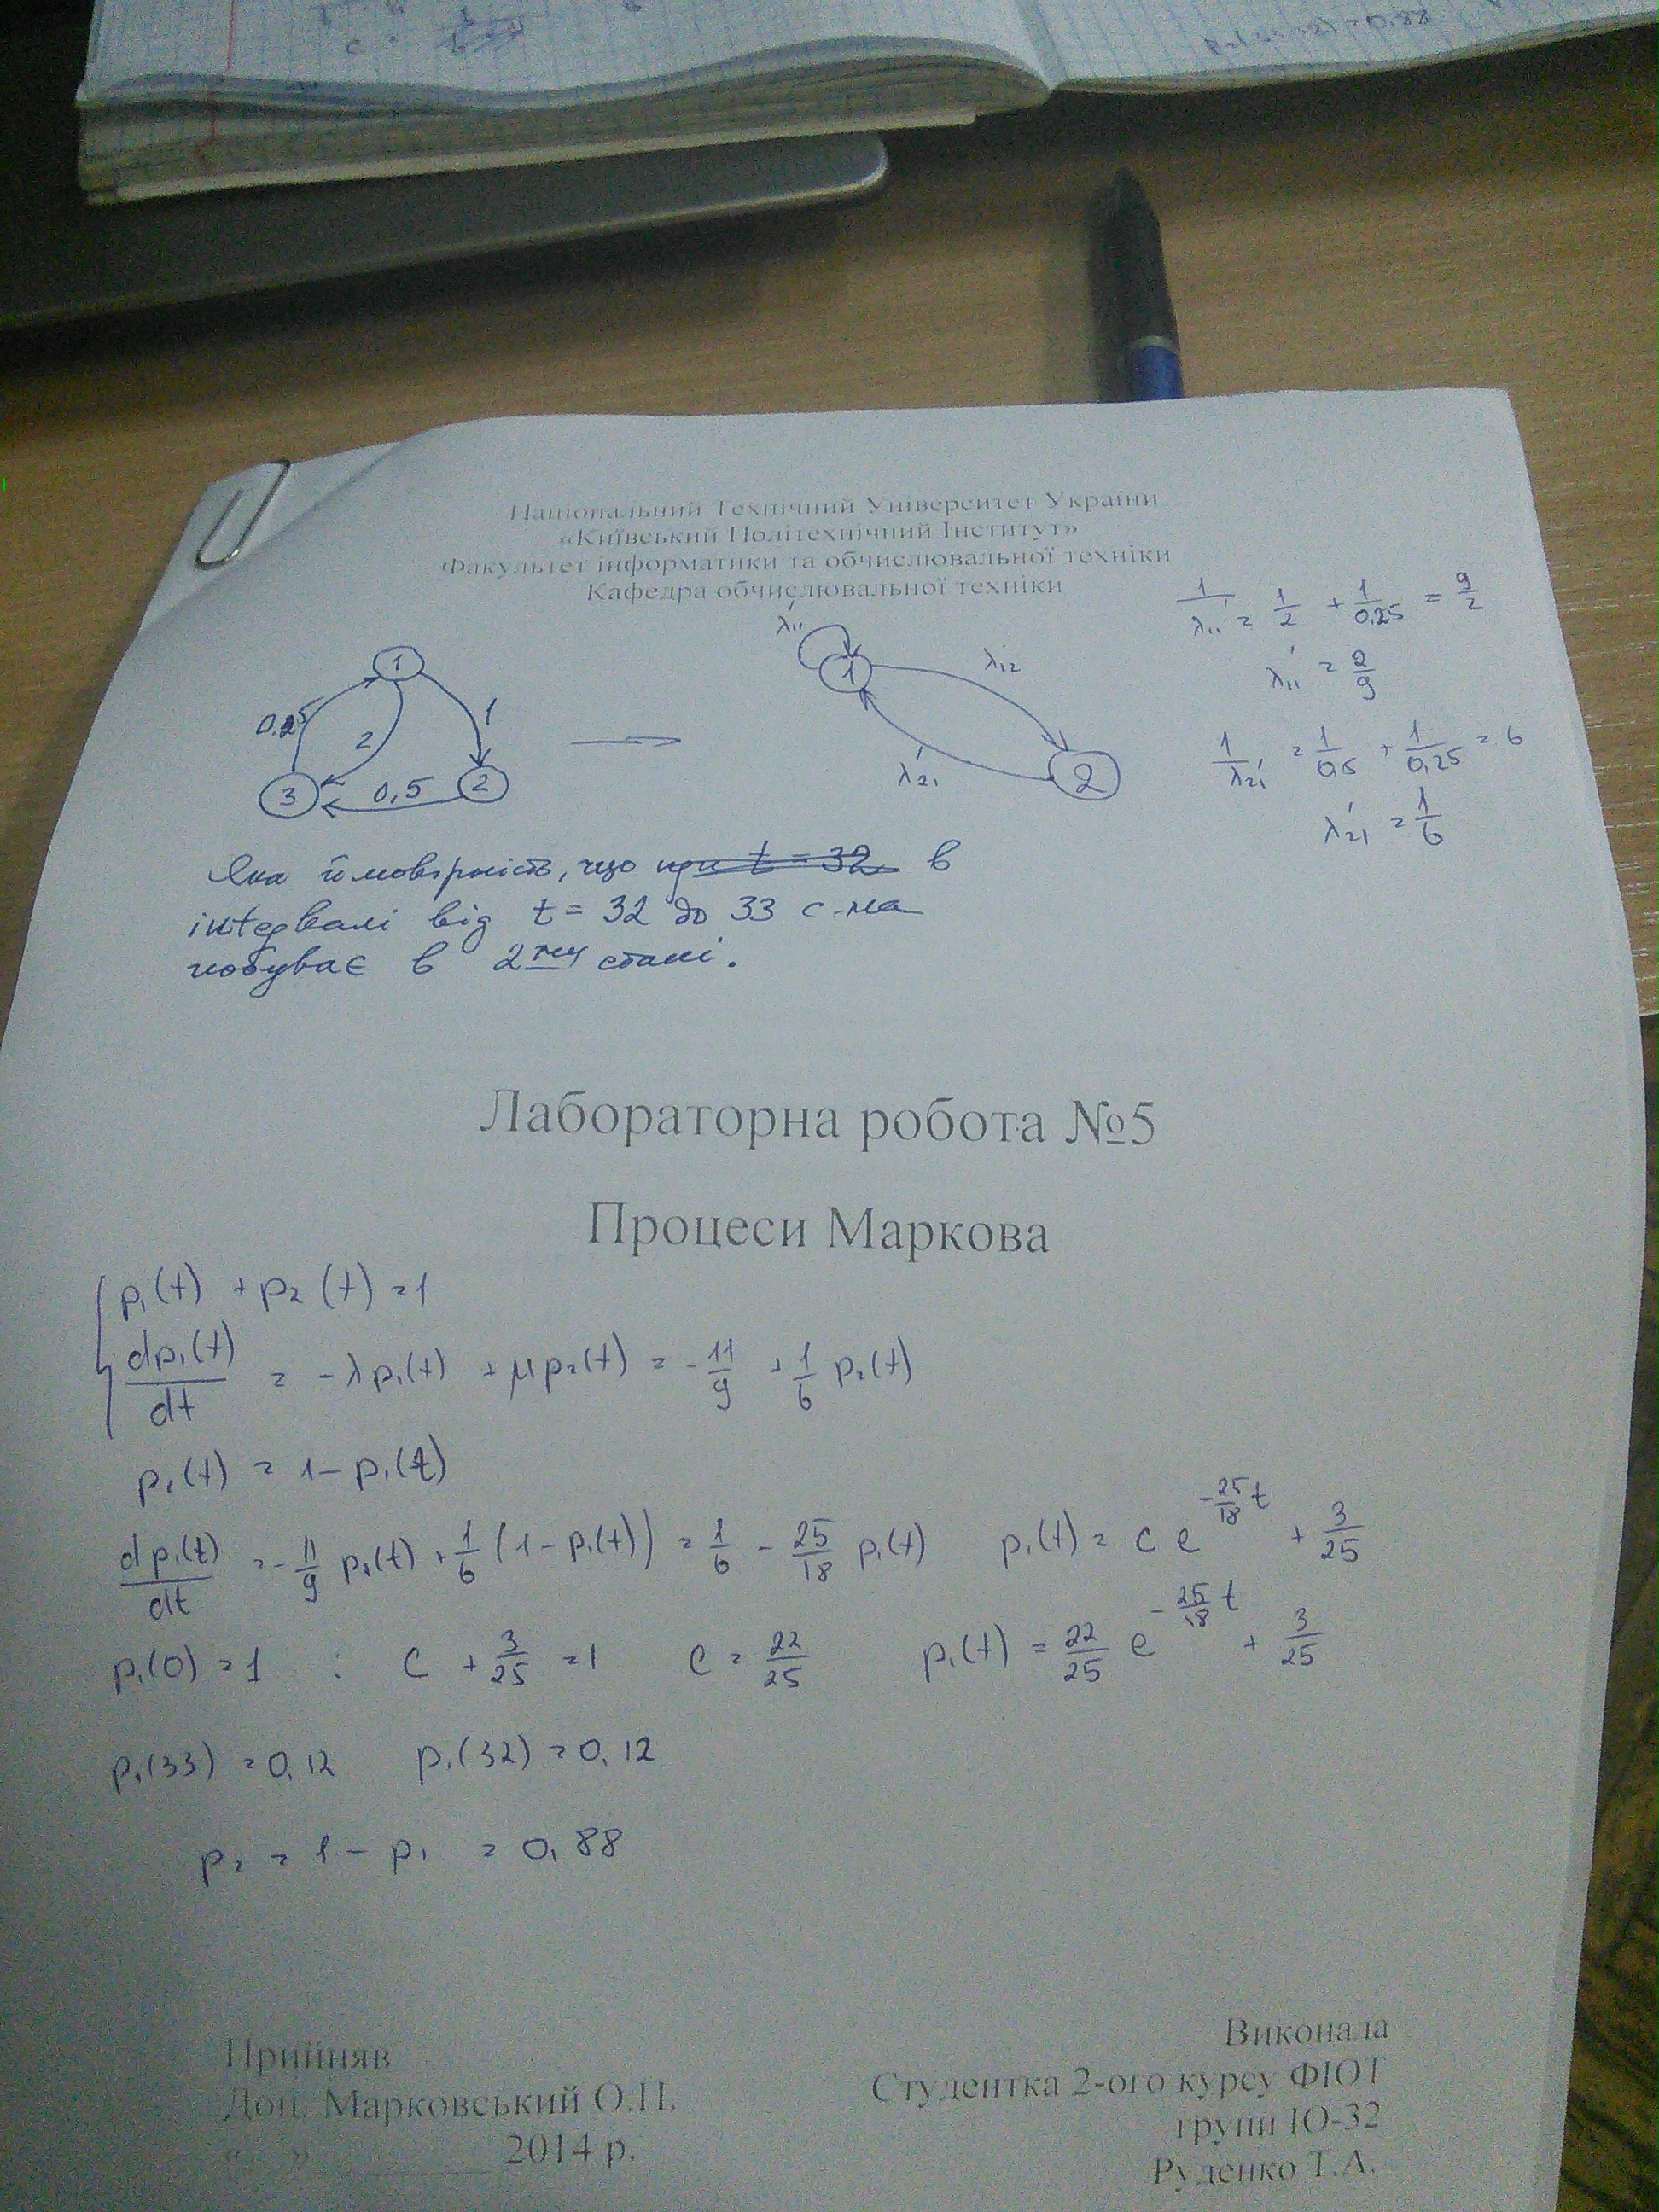 Національний Технічний Університет України
«Київський Політехнічний Інститут»
Факультет інформатики та обчислювальної техніки
Кафедра обчислювальної техніки
1 2 3 0.25 2 1 0,5
λ₁₁' 1 λ₁₂ λ₂₁' 2
1/λ₁₁' = 1/2 + 1/0,25 = 9/2
λ₁₁' = 2/9
1/λ₂₁' = 1/0,5 + 1/0,25 = 6
λ₂₁' = 1/6
Яка ймовірність, що при t = 32 в
інтервалі від t = 32 до 33 с-ма
побуває в 2му стані.
Лабораторна робота №5
Процеси Маркова
p₁(t) + p₂(t) = 1
dp₁(t)/dt = -λp₁(t) + μp₂(t) = -11/9 + 1/6 p₂(t)
p₂(t) = 1 - p₁(t)
dp₁(t)/dt = -11/9 p₁(t) + 1/6 (1 - p₁(t)) = 1/6 - 25/18 p₁(t) p₁(t) = c e^(-25/18 t) + 3/25
p₁(0) = 1 : c + 3/25 = 1 c = 22/25 p₁(t) = 22/25 e^(-25/18 t) + 3/25
p₁(33) = 0,12 p₁(32) = 0,12
p₂ = 1 - p₁ = 0,88
Прийняв
Доц. Марковський О.П.
« » 2014 р.
Виконала
Студентка 2-ого курсу ФІОТ
групи ІО-32
Руденко Т.А.